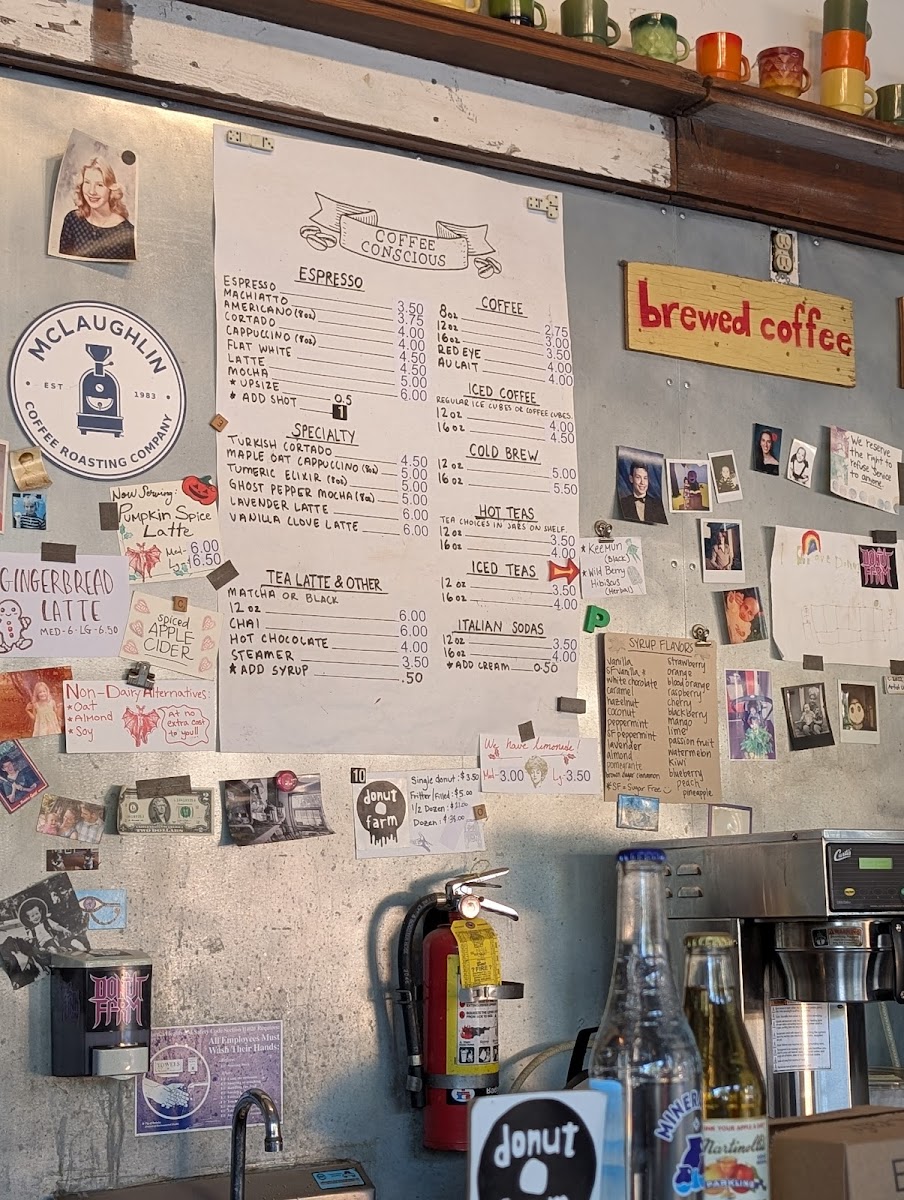 COFFEE
CONSCIOUS
ESPRESSO
ESPRESSO 3.50
MACHIATTO 3.75
AMERICANO (8oz) 4.00
CORTADO 4.00
CAPPUCCINO (8oz) 4.50
FLAT WHITE 4.50
LATTE 5.00
MOCHA 6.00
* UPSIZE 0.5
* ADD SHOT 1
SPECIALTY
TURKISH CORTADO 4.50
MAPLE OAT CAPPUCCINO (8oz) 5.00
TUMERIC ELIXIR (8oz) 5.00
GHOST PEPPER MOCHA (8oz) 5.00
LAVENDER LATTE 6.00
VANILLA CLOVE LATTE 6.00
TEA LATTE & OTHER
MATCHA OR BLACK
12 oz 6.00
CHAI 6.00
HOT CHOCOLATE 4.00
STEAMER 3.50
* ADD SYRUP .50
COFFEE
8oz 2.75
12oz 3.00
16oz 3.50
RED EYE 4.00
AU LAIT 4.00
ICED COFFEE
REGULAR ICE CUBES OR COFFEE CUBES.
12 oz 4.00
16 oz 4.50
COLD BREW
12 oz 5.00
16 oz 5.50
HOT TEAS
TEA CHOICES IN JARS ON SHELF.
12oz 3.50
16oz 4.00
ICED TEAS
12oz 3.50
16oz 4.00
ITALIAN SODAS
12oz 3.50
16oz 4.00
* ADD CREAM 0.50
brewed coffee
MCLAUGHLIN
EST 1983
COFFEE ROASTING COMPANY
Now Serving:
Pumpkin Spice
Latte
Med- 6.00
Lg- 6.50
GINGERBREAD
LATTE
MED - 6 - LG - 6.50
Spiced
APPLE
CIDER
Non-Dairy Alternatives:
* Oat
* Almond
* Soy
At no
extra cost
to you!!
TWO DOLLARS
We have limonade!
Med-3.00 Lg-3.50
10
donut
farm
Single donut: $3.50
Fritter/Filled: $5.00
1/2 Dozen:
Dozen:
* Keemun
(Black)
* Wild Berry
Hibiscus
(Herbal)
P
SYRUP FLAVORS
vanilla
SF vanilla *
white chocolate
caramel
hazelnut
coconut
peppermint
SF peppermint
lavender
almond
pomegranate
brown sugar cinnamon
* SF = Sugar Free
strawberry
orange
blood orange
raspberry
cherry
blackberry
mango
lime
passion fruit
watermelon
kiwi
blueberry
peach
pineapple
We reserve
the right to
refuse service
to anyone.
DONUT
FARM
DONUT
FARM
All Employees Must
Wash Their Hands:
Curtis
FIRE
donut
farm
MINER
Martinelli's
SPARKLING